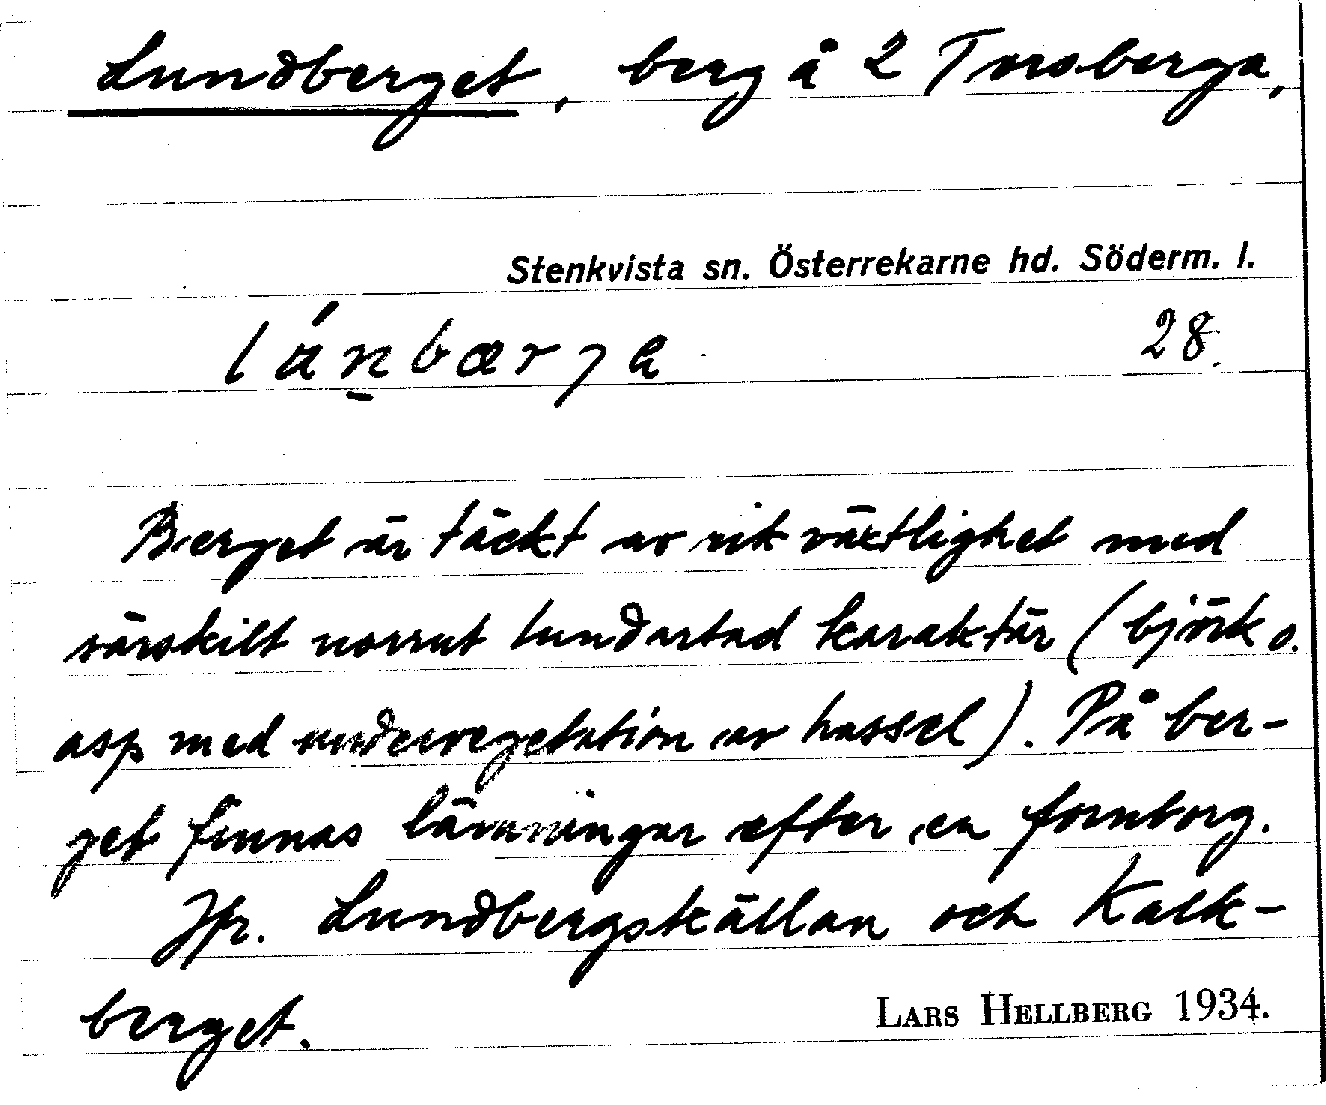 Lundberget, berg å 2 Torsberga,
Stenkvista sn. Österrekarne hd. Söderm. l.
28.
Berget är täckt av rik växtlighet med
särskilt norrut lundartad karaktär (björk o.
asp med undervegetation av hassel). På ber-
get finnas lämningar efter en fornborg.
Jfr. Lundbergskällan och Kalk-
berget.
LARS HELLBERG 1934.